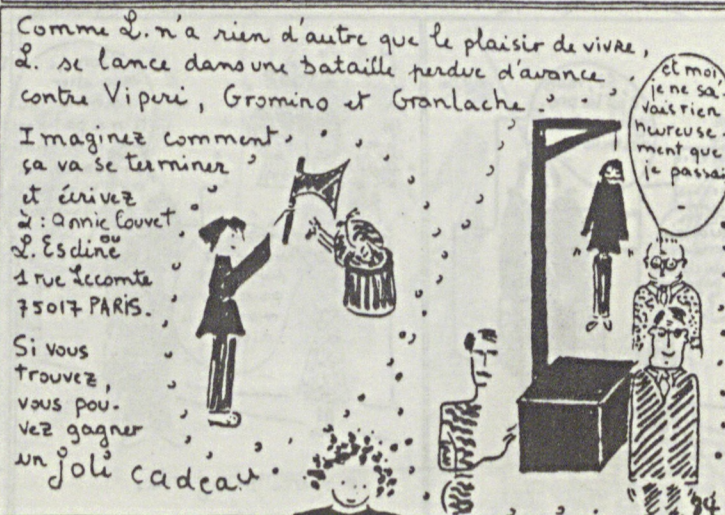 Comme L. n'a rien d'autre que le plaisir de vivre,
L. se lance dans une bataille perdue d'avance
contre Viperi, Gromino et Granlache.
Imaginez comment
ça va se terminer
et écrivez
à : annie Couvet
où
L. Esdine
1 rue Lecomte
75017 PARIS.
Si vous
trouvez,
vous pou-
vez gagner
un joli cadeau.
et moi,
je ne sa-
vais rien
heureuse-
ment que
je passai